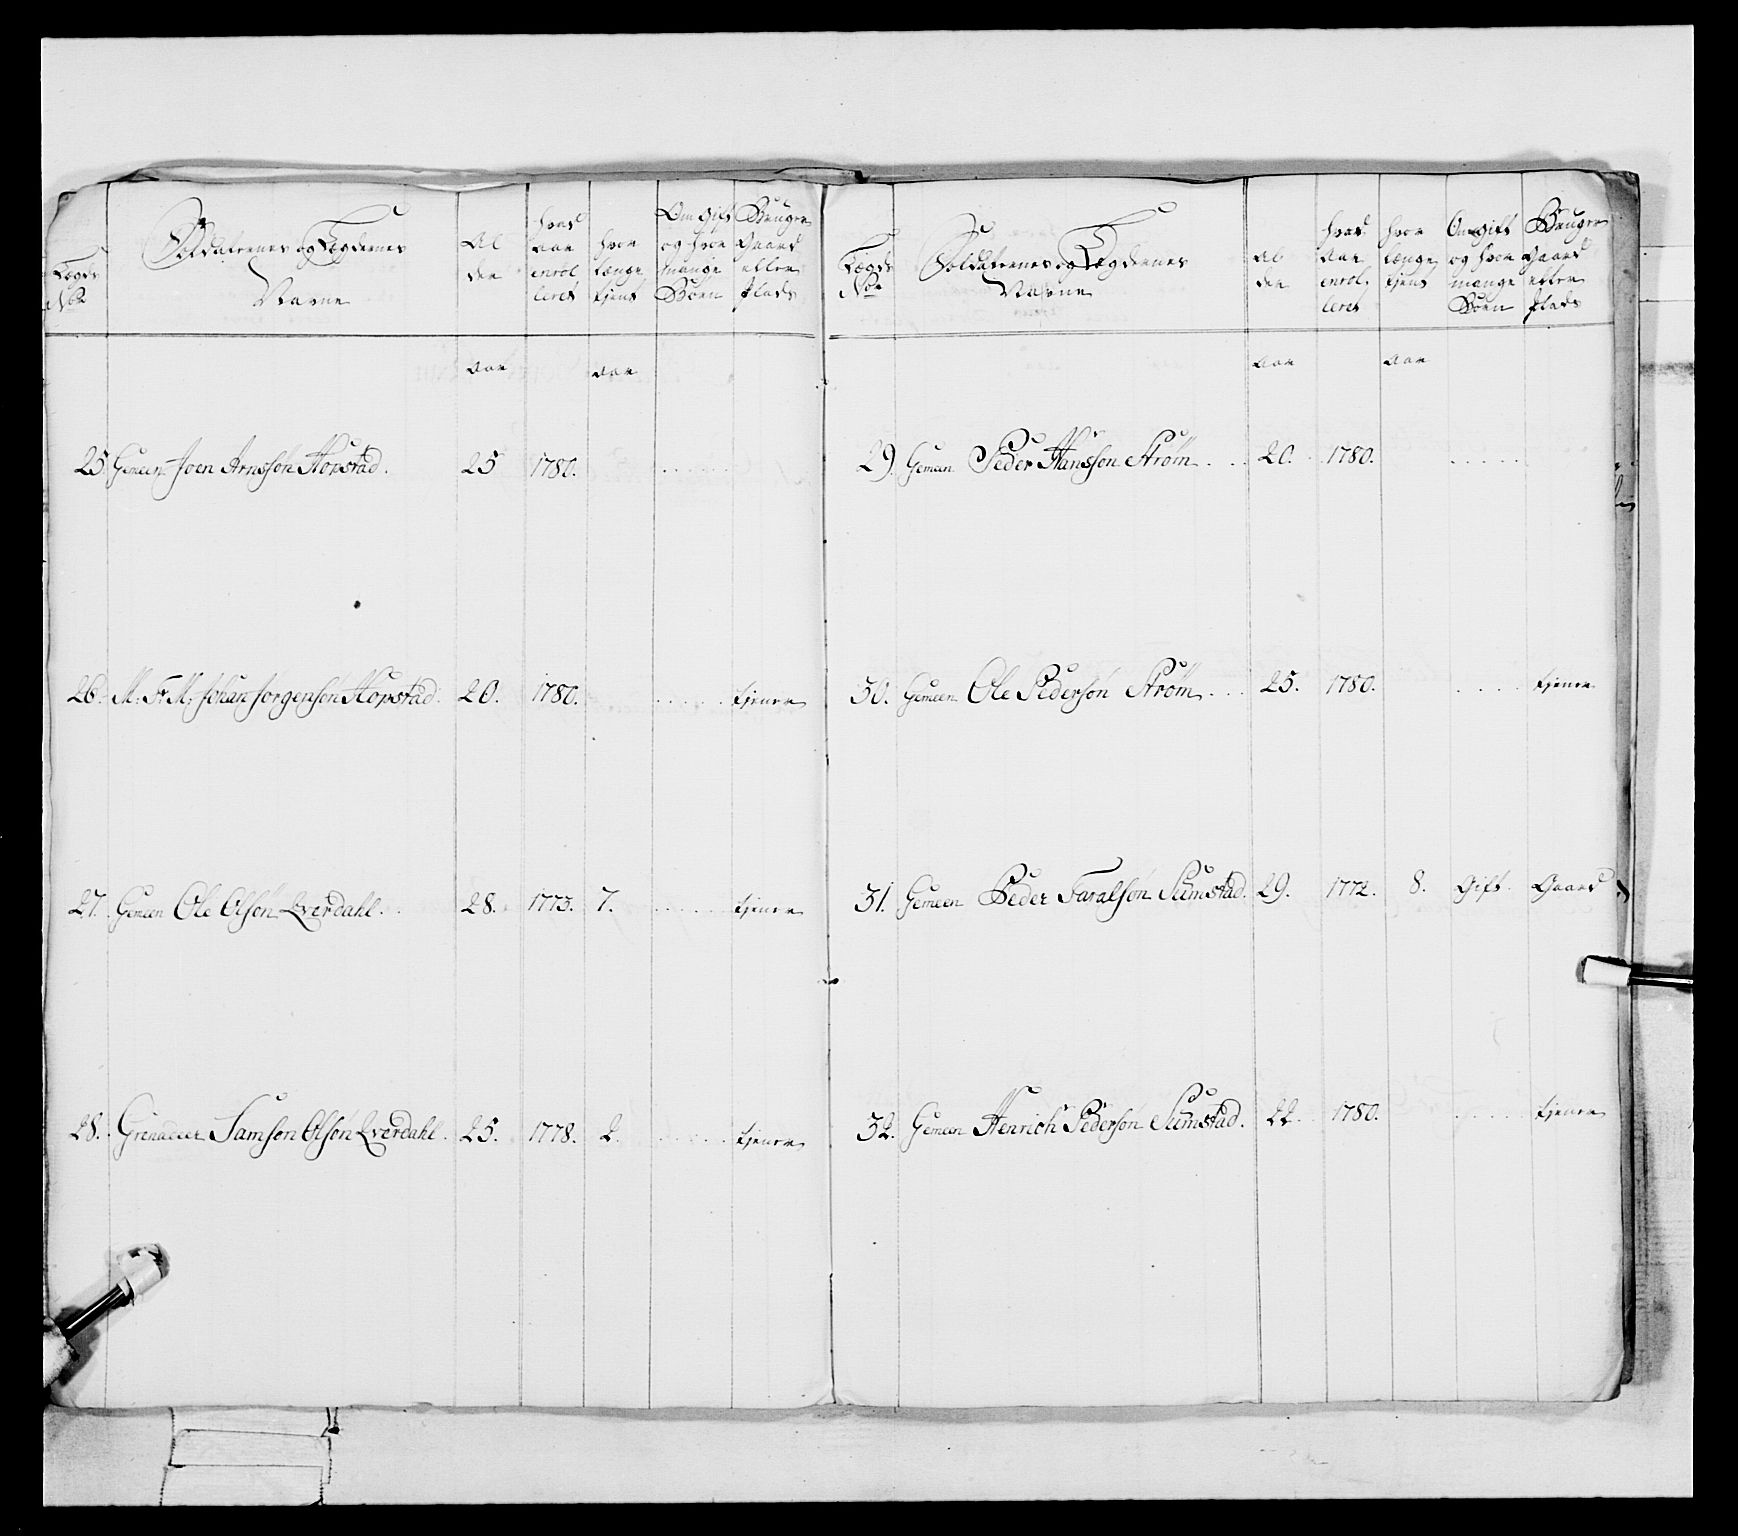 Lægds
No
Soldaternes og Lægdernes
Navne
Al
der
hvad
Aar
enrol
leret
hvor
længe
tjent
Om Gift
og hvor
mange
Børn
Bruger
Gaard
eller
Plads
Aar
Aar
25 Gemeen Joen Arnsson Hopstad. 25 1780.
26. M: Fr M: Johan Jorgensøn Hopstad. 20. 1780. tjener
27. Gemeen Ole Olsøn Qverdahl. 28. 1773. 7. tjener
28. Grenadeer Samson Olsøn Qverdahl. 25. 1778. 2. tjener
Lægds
No
Soldaternes og Lægdernes
Navne
Al
der
hvad
Aar
enrol.
leret
hvor
længe
tjent
Om Gift
og hvor
mange
Børn
Bruger
Gaard
eller
Plads
Aar
Aar
29. Gemeen Peder Hansson Strøm. 20. 1780.
30. Gemeen Ole Pedersøn Strøm. 25. 1780. tjener
31. Gemeen Peder Taralsøn Sumstad. 29. 1772. 8. Gift Gaard
32. Gemeen Henrich Pedersøn Sumstad. 22 1780. tjener